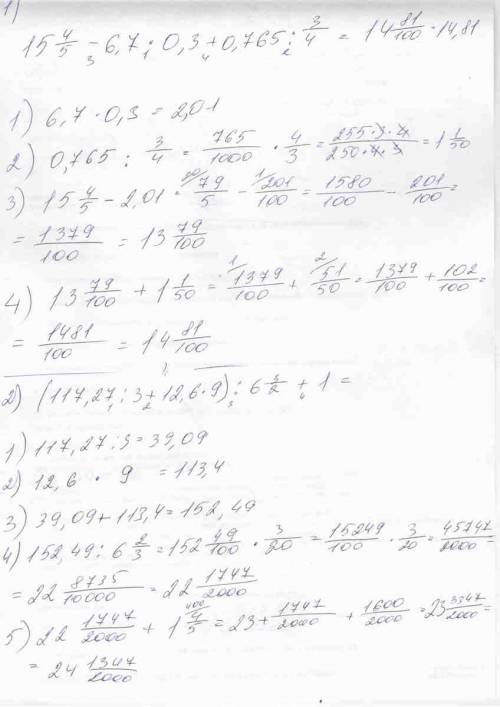 1)
15 4/5 - 6,7 · 0,3 + 0,765 : 3/4 = 14 81/100 · 14,81
1) 6,7 · 0,3 = 2,01
2) 0,765 : 3/4 = 765/1000 · 4/3 = 255·3·4/250·4·3 = 1 1/50
3) 15 4/5 - 2,01 · 79/5 - 201/100 = 1580/100 - 201/100 =
= 1379/100 = 13 79/100
4) 13 79/100 + 1 1/50 = 1379/100 + 51/50 = 1379/100 + 102/100 =
= 1481/100 = 14 81/100
2) (117,27 : 3 + 12,6 · 9) : 6 + 1 =
1) 117,27 : 3 = 39,09
2) 12,6 · 9 = 113,4
3) 39,09 + 113,4 = 152,49
4) 152,49 : 6 2/3 = 152 49/100 · 3/20 = 15249/100 · 3/20 = 45747/2000 =
= 22 8735/10000 = 22 1747/2000
5) 22 1747/2000 + 1 4/5 = 23 + 1747/2000 + 1600/2000 = 23 3347/2000 =
= 24 1347/2000